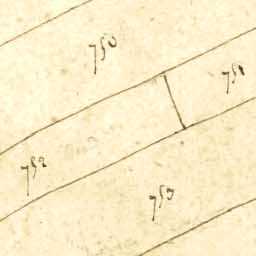 750
751
752
753